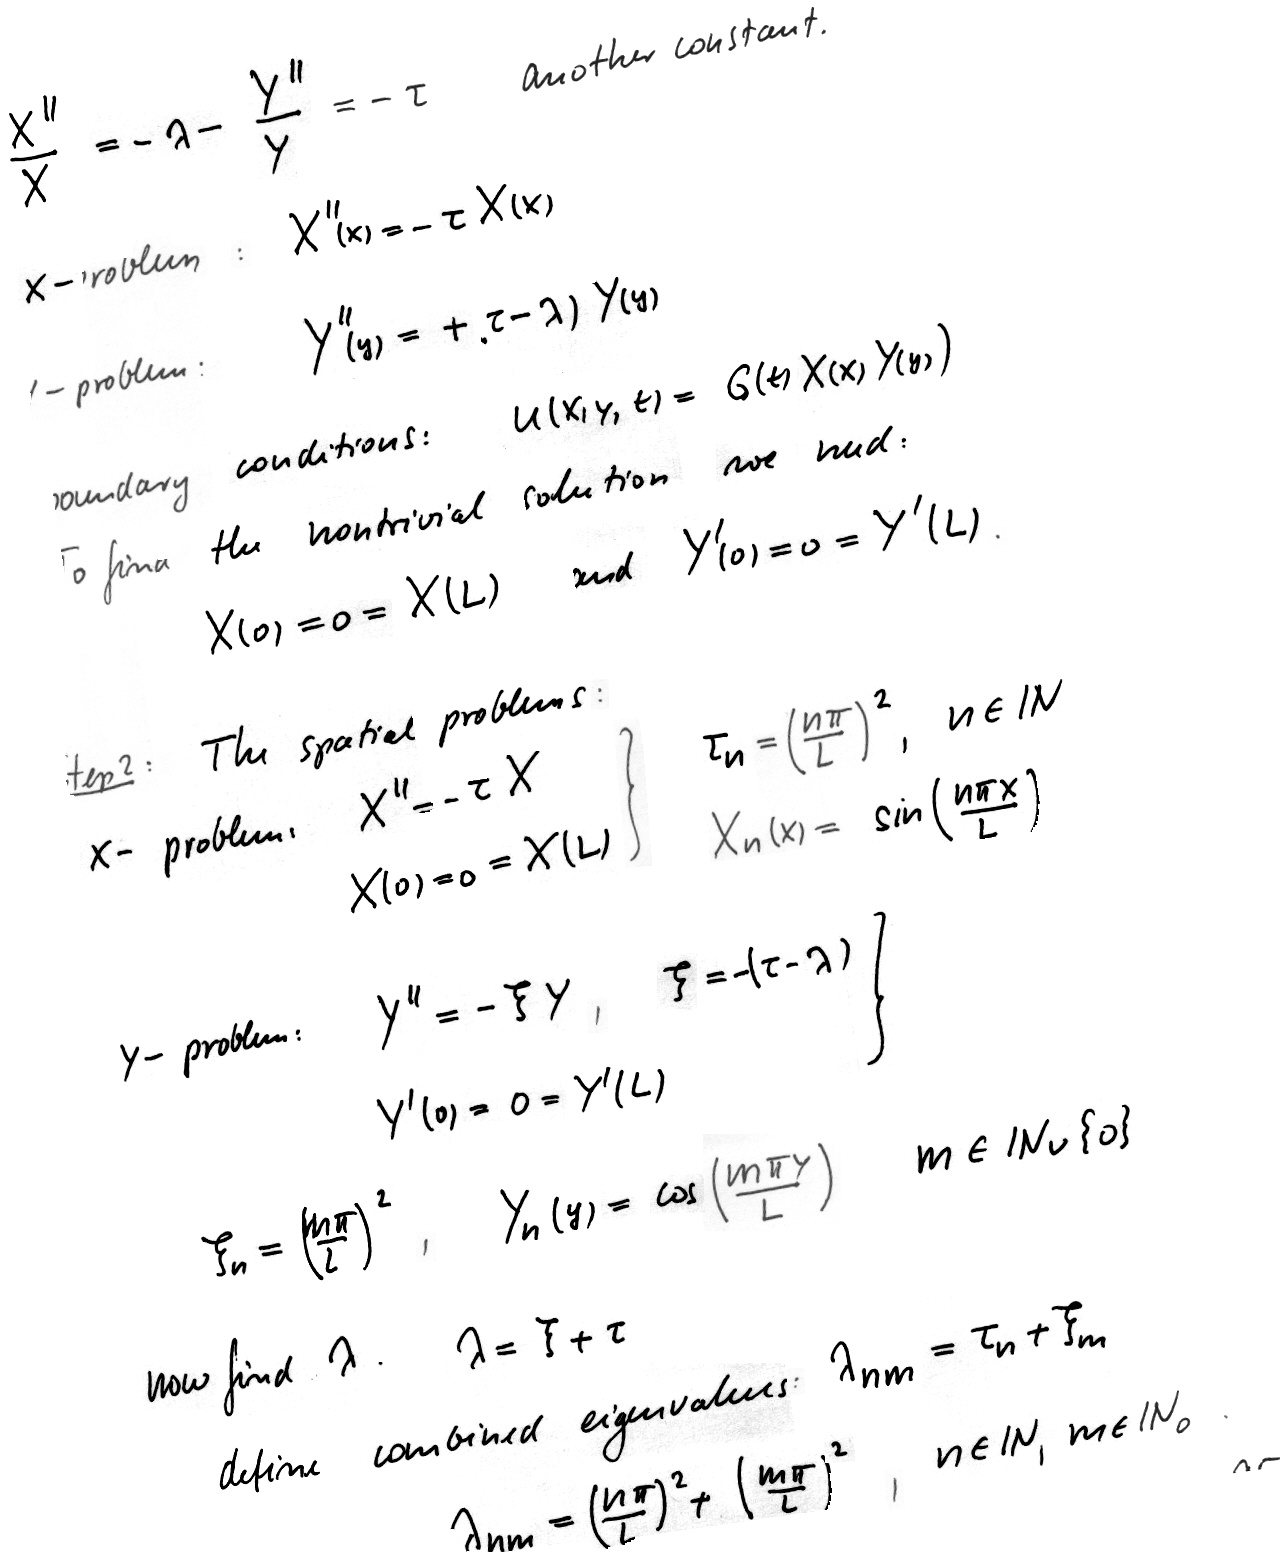 X''/X = -λ - Y''/Y = -τ another constant.
x-problem: X''(x) = -τ X(x)
y-problem: Y''(y) = +(τ-λ) Y(y)
boundary conditions: u(x,y,t) = G(t) X(x) Y(y))
To find the nontrivial solution we need:
X(0) = 0 = X(L) and Y'(0) = 0 = Y'(L).
Step 2: The spatial problems:
x-problem: X'' = -τ X } τ_n = (nπ/L)^2, n ∈ IN
X(0) = 0 = X(L) X_n(x) = sin(nπx/L)
Y-problem: Y'' = -ξ Y, ξ = -(τ-λ) }
Y'(0) = 0 = Y'(L)
ξ_n = (mπ/L)^2, Y_n(y) = cos(mπy/L) m ∈ IN ∪ {0}
now find λ. λ = ξ + τ
define combined eigenvalues: λ_nm = τ_n + ξ_m
λ_nm = (nπ/L)^2 + (mπ/L)^2, n ∈ IN, m ∈ IN_0.